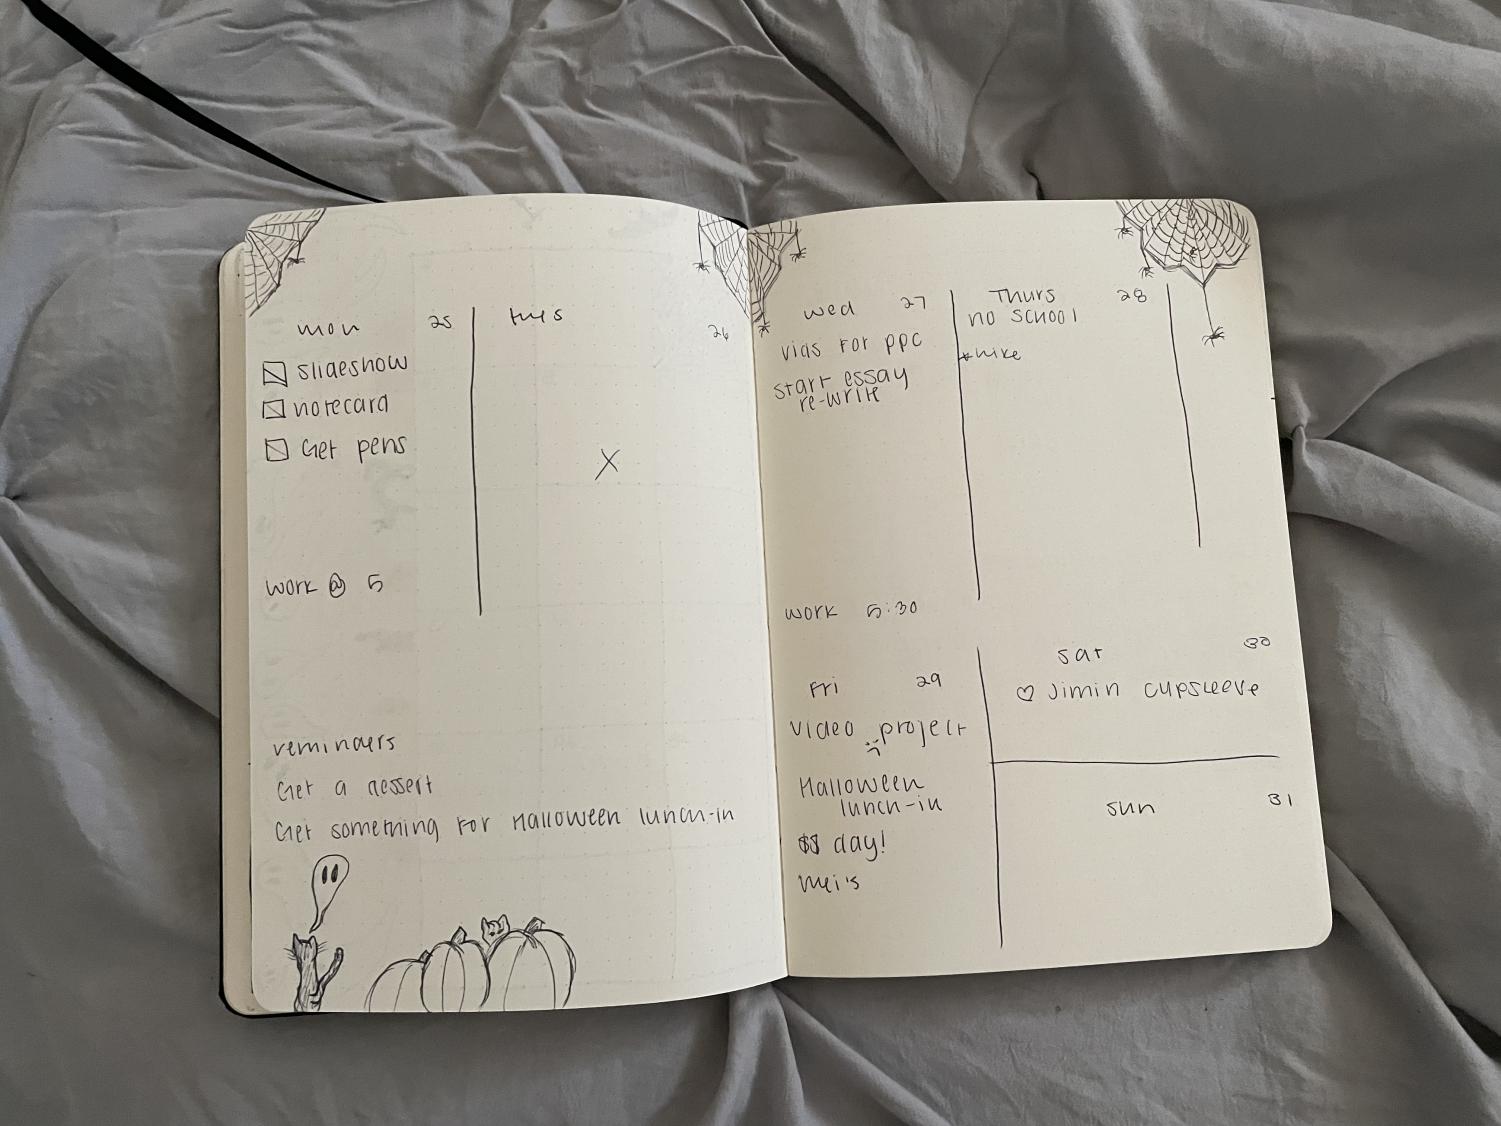 mon 25
slideshow
notecard
Get pens
work @ 5
tues 26
X
reminders
Get a dessert
Get something for Halloween lunch-in
wed 27
vids for ppc
start essay
re-write
work 5:30
Thurs 28
no school
*hike
Fri 29
video project
Halloween
lunch-in
$$ day!
Mei's
sat 30
♡ Jimin cupsleeve
sun 31